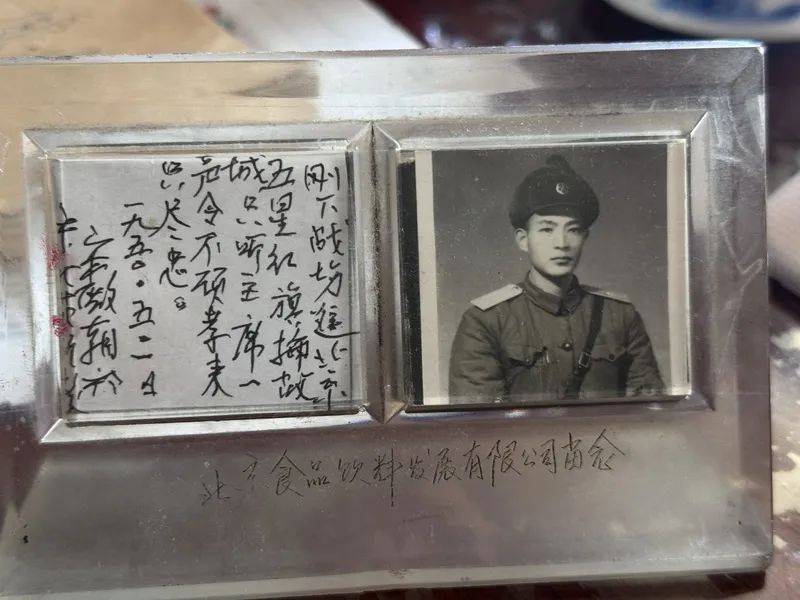 刚下战场进北京
五星红旗插故
城只听主席一
声令不顾孝来
只尽忠。
一九五〇·五
北京食品饮料发展有限公司留念